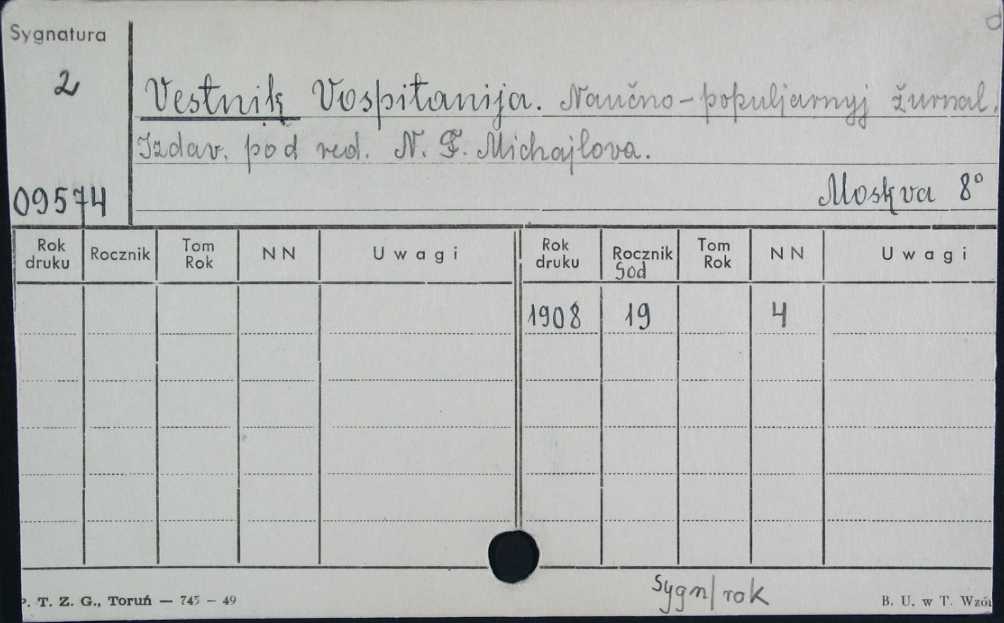 Sygnatura
2
Vestnik Vospitanija. Naučno-populjarnyj žurnal.
Izdav. pod red. N. F. Michajlova.
09574
Moskva 8°
Rok druku Rocznik Tom Rok NN Uwagi Rok druku Rocznik God Tom Rok NN Uwagi
1908 19 4
Sygn/rok
P. T. Z. G., Toruń — 745 — 49
B. U. w T. Wzór